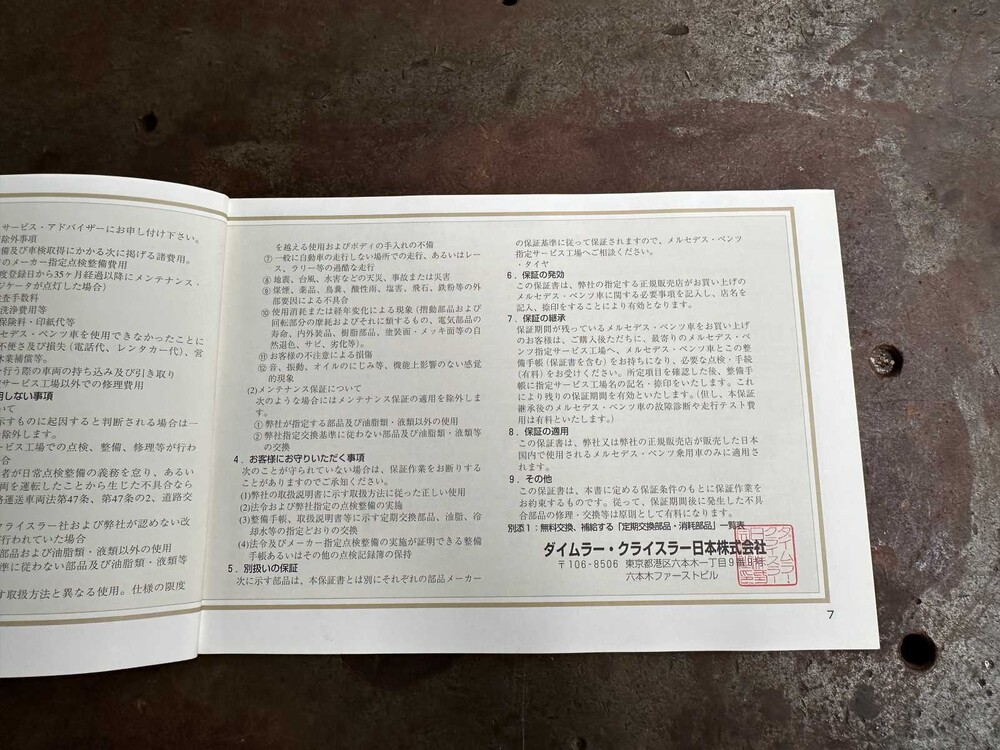 サービス・アドバイザーにお申し付け下さい。
除外事項
備及び車検取得にかかる次に掲げる諸費用。
のメーカー指定点検整備費用
度登録日から35ヶ月経過以降にメンテナンス・
ジケータが点灯した場合）
査手数料
洗浄費用等
保険料・印紙代等
セデス・ベンツ車を使用できなかったことに
不便さ及び損失（電話代、レンタカー代）、営
休業補償等。
を行う際の車両の持ち込み及び引き取り
サービス工場以外での修理費用
用しない事項
いて
示すものに起因すると判断される場合は一
除外します。
ービス工場での点検、整備、修理等が行わ
合
者が日常点検整備の義務を怠り、あるい
両を運転したことから生じた不具合なら
路運送車両法第47条、第47条の2、道路交
クライスラー社および弊社が認めない改
行われていた場合
部品および油脂類・液類以外の使用
準に従わない部品及び油脂類・液類等
す取扱方法と異なる使用。仕様の限度
を越える使用およびボディの手入れの不備
⑦一般に自動車の走行しない場所での走行、あるいはレー
ス、ラリー等の過酷な走行
⑧地震、台風、水害などの天災、事故または災害
⑨煤煙、薬品、鳥糞、酸性雨、塩害、飛石、鉄粉等の外
部要因による不具合
⑩使用消耗または経年変化による現象（摺動部品および
回転部分の摩耗およびそれに類するもの、電気部品の
寿命、内外装品、樹脂部品、塗装面・メッキ面等の自
然退色、サビ、劣化等）。
⑪お客様の不注意による損傷
⑫音、振動、オイルのにじみ等、機能上影響のない感覚
的現象
(2)メンテナンス保証について
次のような場合にはメンテナンス保証の適用を除外しま
す。
①弊社が指定する部品及び油脂類・液類以外の使用
②弊社指定交換基準に従わない部品及び油脂類・液類等
の交換
4．お客様にお守りいただく事項
次のことが守られていない場合は、保証作業をお断りするこ
とがありますのでご承知ください。
(1)弊社の取扱説明書に示す取扱方法に従った正しい使用
(2)法令および弊社指定の点検整備の実施
(3)整備手帳、取扱説明書等に示す定期交換部品、油脂、冷
却水等の指定どおりの交換
(4)法令及びメーカー指定点検整備の実施が証明できる整備
手帳あるいはその他の点検記録簿の保持
5．別扱いの保証
次に示す部品は、本保証書とは別にそれぞれの部品メーカー
の保証基準に従って保証されますので、メルセデス・ベンツ
指定サービス工場へご相談ください。
・タイヤ
6．保証の発効
この保証書は、弊社の指定する正規販売店がお買い上げの
メルセデス・ベンツ車に関する必要事項を記入し、店名を
記入、捺印をすることにより有効となります。
7．保証の継承
保証期間が残っているメルセデス・ベンツ車をお買い上げ
のお客様は、ご購入後ただちに、最寄りのメルセデス・ベ
ンツ指定サービス工場へ、メルセデス・ベンツ車とこの整
備手帳（保証書を含む）をお持ちになり、必要な点検・手続
（有料）をお受けください。所定項目を確認した後、整備手
帳に指定サービス工場名の記名・捺印をいたします。これ
により残りの保証期間を有効といたします。（但し、本保証
継承後のメルセデス・ベンツ車の故障診断や走行テスト費
用は有料といたします。）
8．保証の適用
この保証書は、弊社又は弊社の正規販売店が販売した日本
国内で使用されるメルセデス・ベンツ乗用車のみに適用さ
れます。
9．その他
この保証書は、本書に定める保証条件のもとに保証作業を
お約束するものです。従って、保証期間後に発生した不具
合部品の修理・交換等は原則として有料になります。
別添1：無料交換、補給する「定期交換部品・消耗部品」一覧表
ダイムラー・クライスラー日本株式会社
〒106-8506 東京都港区六本木一丁目9番9号
六本木ファーストビル
7